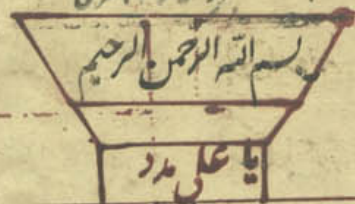 بسم الله الرحمن الرحيم
يا على مدد